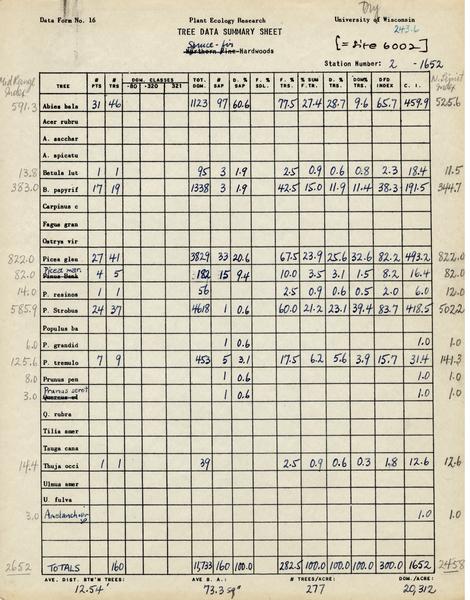 Dry
Data Form No. 16 Plant Ecology Research University of Wisconsin
TREE DATA SUMMARY SHEET 243.6
Spruce - fir [= site 6002]
Northern Pine-Hardwoods
Station Number: 2 -1652
Mid Range Index
TREE # PTS # TRS DOM. CLASSES -80 -320 321 TOT. DOM. # SAP D. % SAP F. % SDL. F. % TRS. % SUM F.TR. D. % TRS. DOM% TRS. DFD INDEX C. I. Index
591.3 Abies bala 31 46 1123 97 60.6 77.5 27.4 28.7 9.6 65.7 459.9 525.6
Acer rubru
A. sacchar
A. spicatu
13.8 Betula lut 1 1 95 3 1.9 2.5 0.9 0.6 0.8 2.3 18.4 11.5
383.0 B. papyrif 17 19 1338 3 1.9 42.5 15.0 11.9 11.4 38.3 191.5 344.7
Carpinus c
Fagus gran
Ostrya vir
822.0 Picea glau 27 41 3829 33 20.6 67.5 23.9 25.6 32.6 82.2 493.2 822.0
Picea mar.
82.0 Pinus Bank 4 5 182 15 9.4 10.0 3.5 3.1 1.5 8.2 16.4 82.0
14.0 P. resinos 1 1 56 2.5 0.9 0.6 0.5 2.0 6.0 12.0
585.9 P. Strobus 24 37 4618 1 0.6 60.0 21.2 23.1 39.4 83.7 418.5 502.2
Populus ba
6.0 P. grandid 1 0.6 1.0 1.0
125.6 P. tremulo 7 9 453 5 3.1 17.5 6.2 5.6 3.9 15.7 31.4 141.3
8.0 Prunus pen 1 0.6 1.0 1.0
Prunus serot
3.0 1 0.6 1.0 1.0
Q. rubra
Tilia amer
Tsuga cana
14.4 Thuja occi 1 1 39 2.5 0.9 0.6 0.3 1.8 12.6 12.6
Ulmus amer
U. fulva
3.0 1.0 1.0
2652 TOTALS 160 11,733 160 100.0 282.5 100.0 100.0 100.0 300.0 1652 2458
AVE. DIST. BTW'N TREES: AVE B. A.: # TREES/ACRE: DOM./ACRE:
12.54' 73.3 sq" 277 20,312